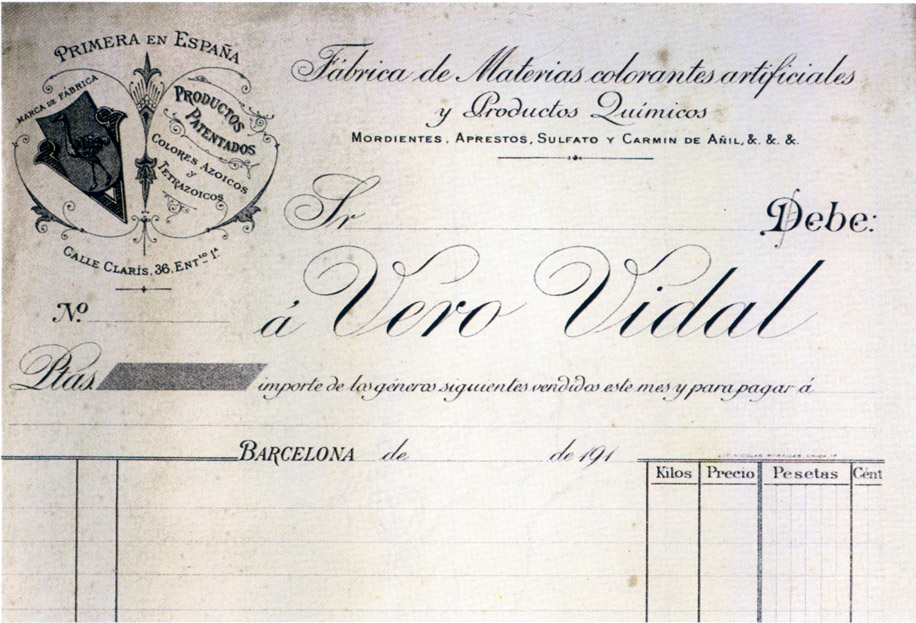 PRIMERA EN ESPAÑA
MARCA DE FÁBRICA
PRODUCTOS
PATENTADOS
COLORES AZOICOS
Y
TETRAZOICOS
CALLE CLARÍS, 36, ENTº 1ª
Fábrica de Materias colorantes artificiales
y Productos Químicos
MORDIENTES, APRESTOS, SULFATO Y CARMIN DE AÑIL, &. &. &.
Sr Debe:
Nº. á Vero Vidal
Ptas importe de los géneros siguientes vendidos este mes y para pagar á
BARCELONA de de 191
LIT. NICOLAS MIRALLES
Kilos Precio Pesetas Cént